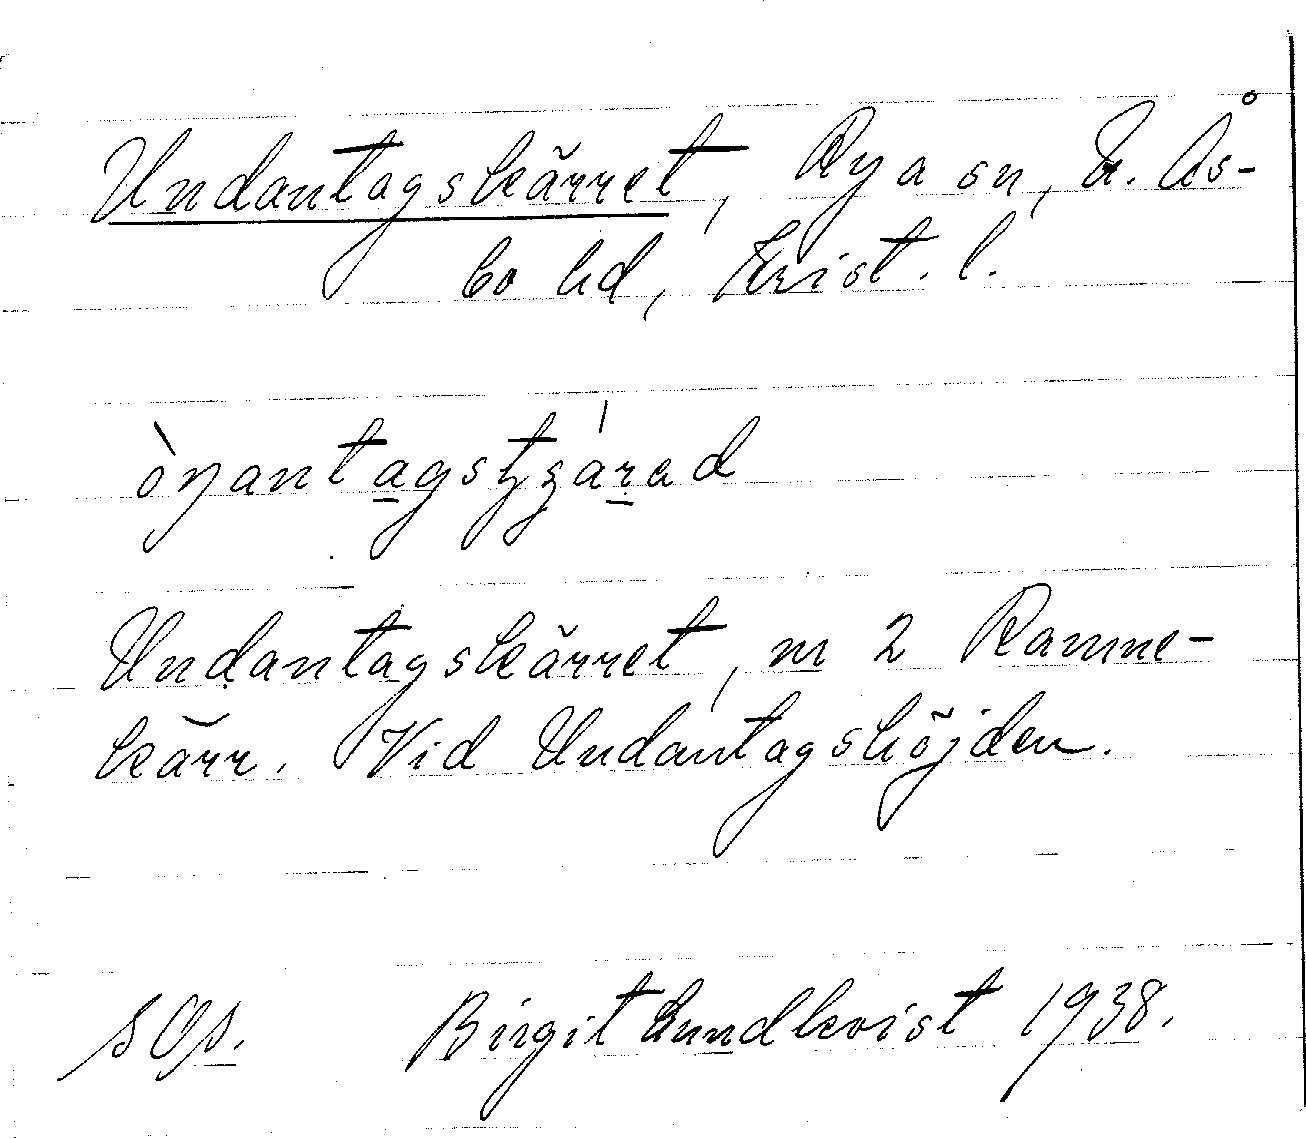 Undantagskärret, Rya sn, N. Ås-
bo hd, Krist. l.
òŋantagstʒárad
Undantagskärret, m 2 Ramne-
kärr. Vid Undantagshöjden.
SOA. Birgit Lundkvist 1938.